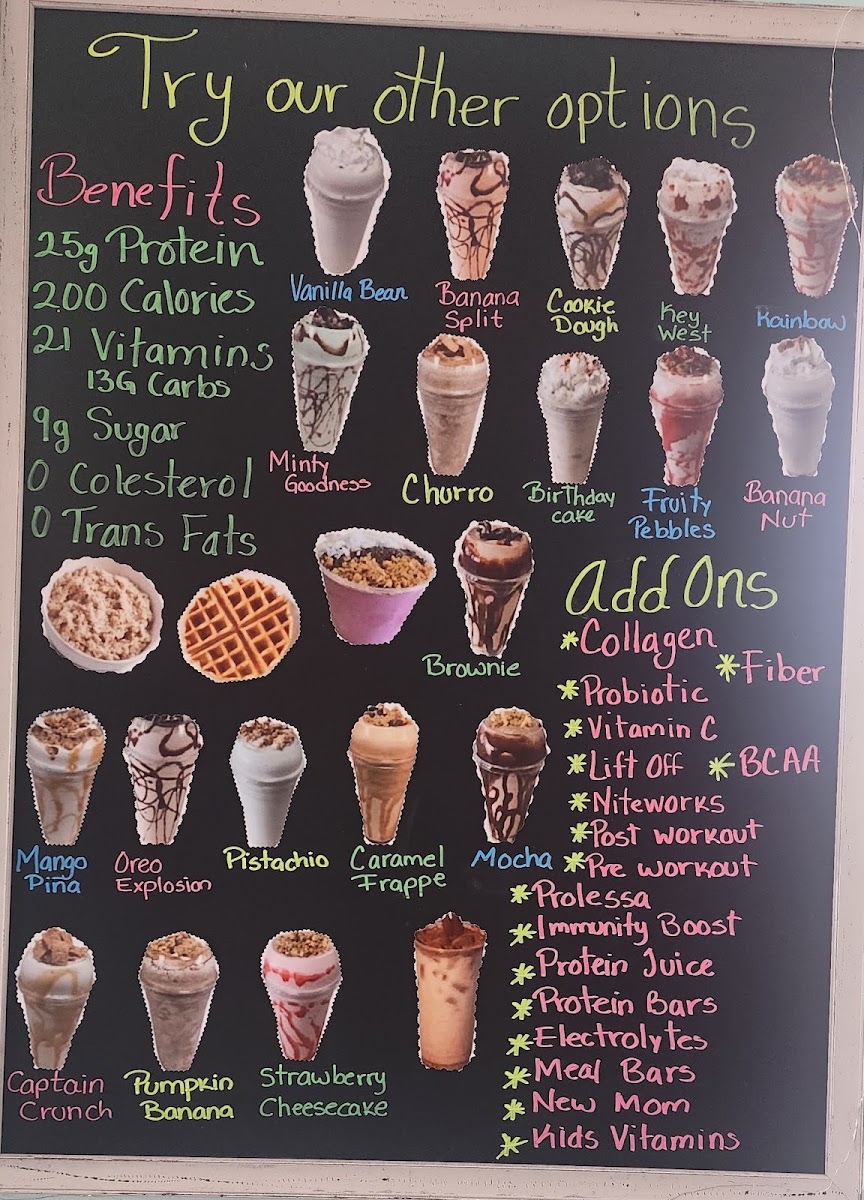 Try our other options
Benefits
25g Protein
200 Calories
21 Vitamins
13G Carbs
9g Sugar
0 Colesterol
0 Trans Fats
Vanilla Bean
Banana
Split
Cookie
Dough
Key
West
Rainbow
Minty
Goodness
Churro
Birthday
cake
Fruity
Pebbles
Banana
Nut
Brownie
Mango
Piña
Oreo
Explosion
Pistachio
Caramel
Frappe
Mocha
Captain
Crunch
Pumpkin
Banana
Strawberry
Cheesecake
Add Ons
*Collagen
*Fiber
*Probiotic
*Vitamin C
*Lift Off *BCAA
*Niteworks
*Post workout
*Pre workout
*Prolessa
*Immunity Boost
*Protein Juice
*Protein Bars
*Electrolytes
*Meal Bars
*New Mom
*Kids Vitamins